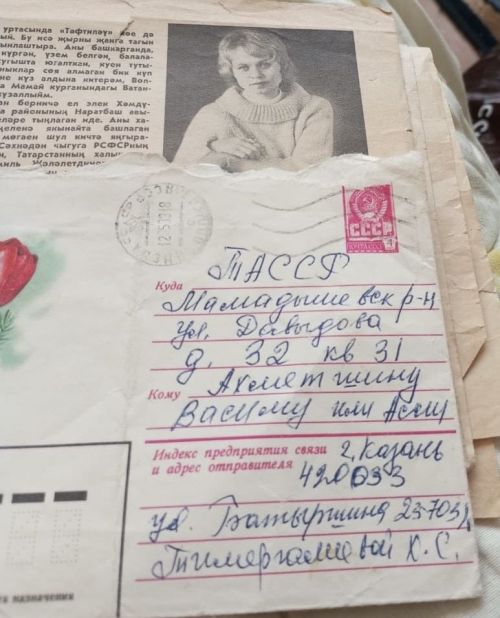 уртасында «Тәфтиләү» көе дә
ый. Бу исә җырны җанга тагын
ынлаштыра. Аны башкарганда,
күргән, үзем белгән, балала-
сугышта югалткан, күен туты-
ныклар соя алмаган бик күп
не күз алдына китерәм, Вол-
а Мамай курганындагы Ватан-
кузаллыйм.
ан берничә ел элек
а районының Наратбаш авы-
еләре тыңлаган иде. Аны ха-
целенә якынайта башлаган
мөгаен шул кичтә яңгыра-
Сәхнәдән чыгуга РСФСРның
н, Татарстанның халык
миль
СССР
ПОЧТА СССР
Куда ТАССР
Мамадышевск р-н
ул. Давыдова
д. 32 кв 31
Кому Ахметшину
Васиму или Асии
Индекс предприятия связи г. Казань
и адрес отправителя 420033
ул. Батыршина
Тимергалиевой К. С.
назначения